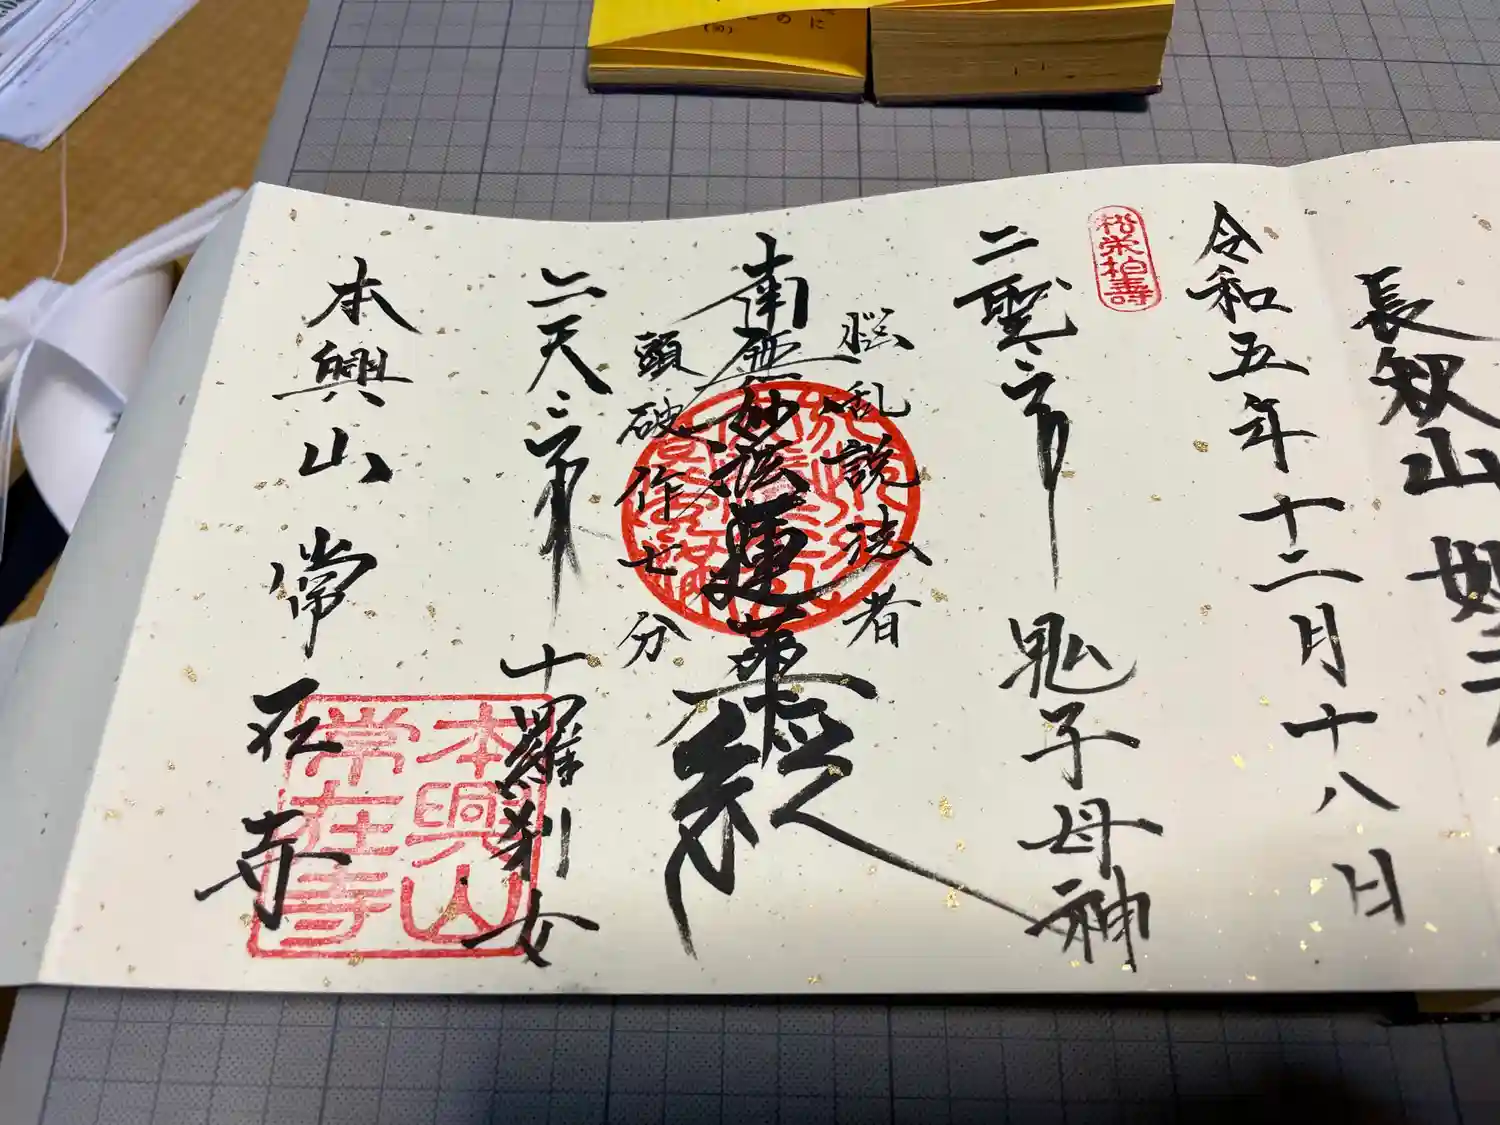 長叙山妙
令和五年十二月十八日
松栄柏壽
二聖二帝
鬼子母神
悩乱説法者
南無妙法蓮華経
頭破作七分
二天二帝
十羅刹女
本興山常在寺
本興山
常在寺